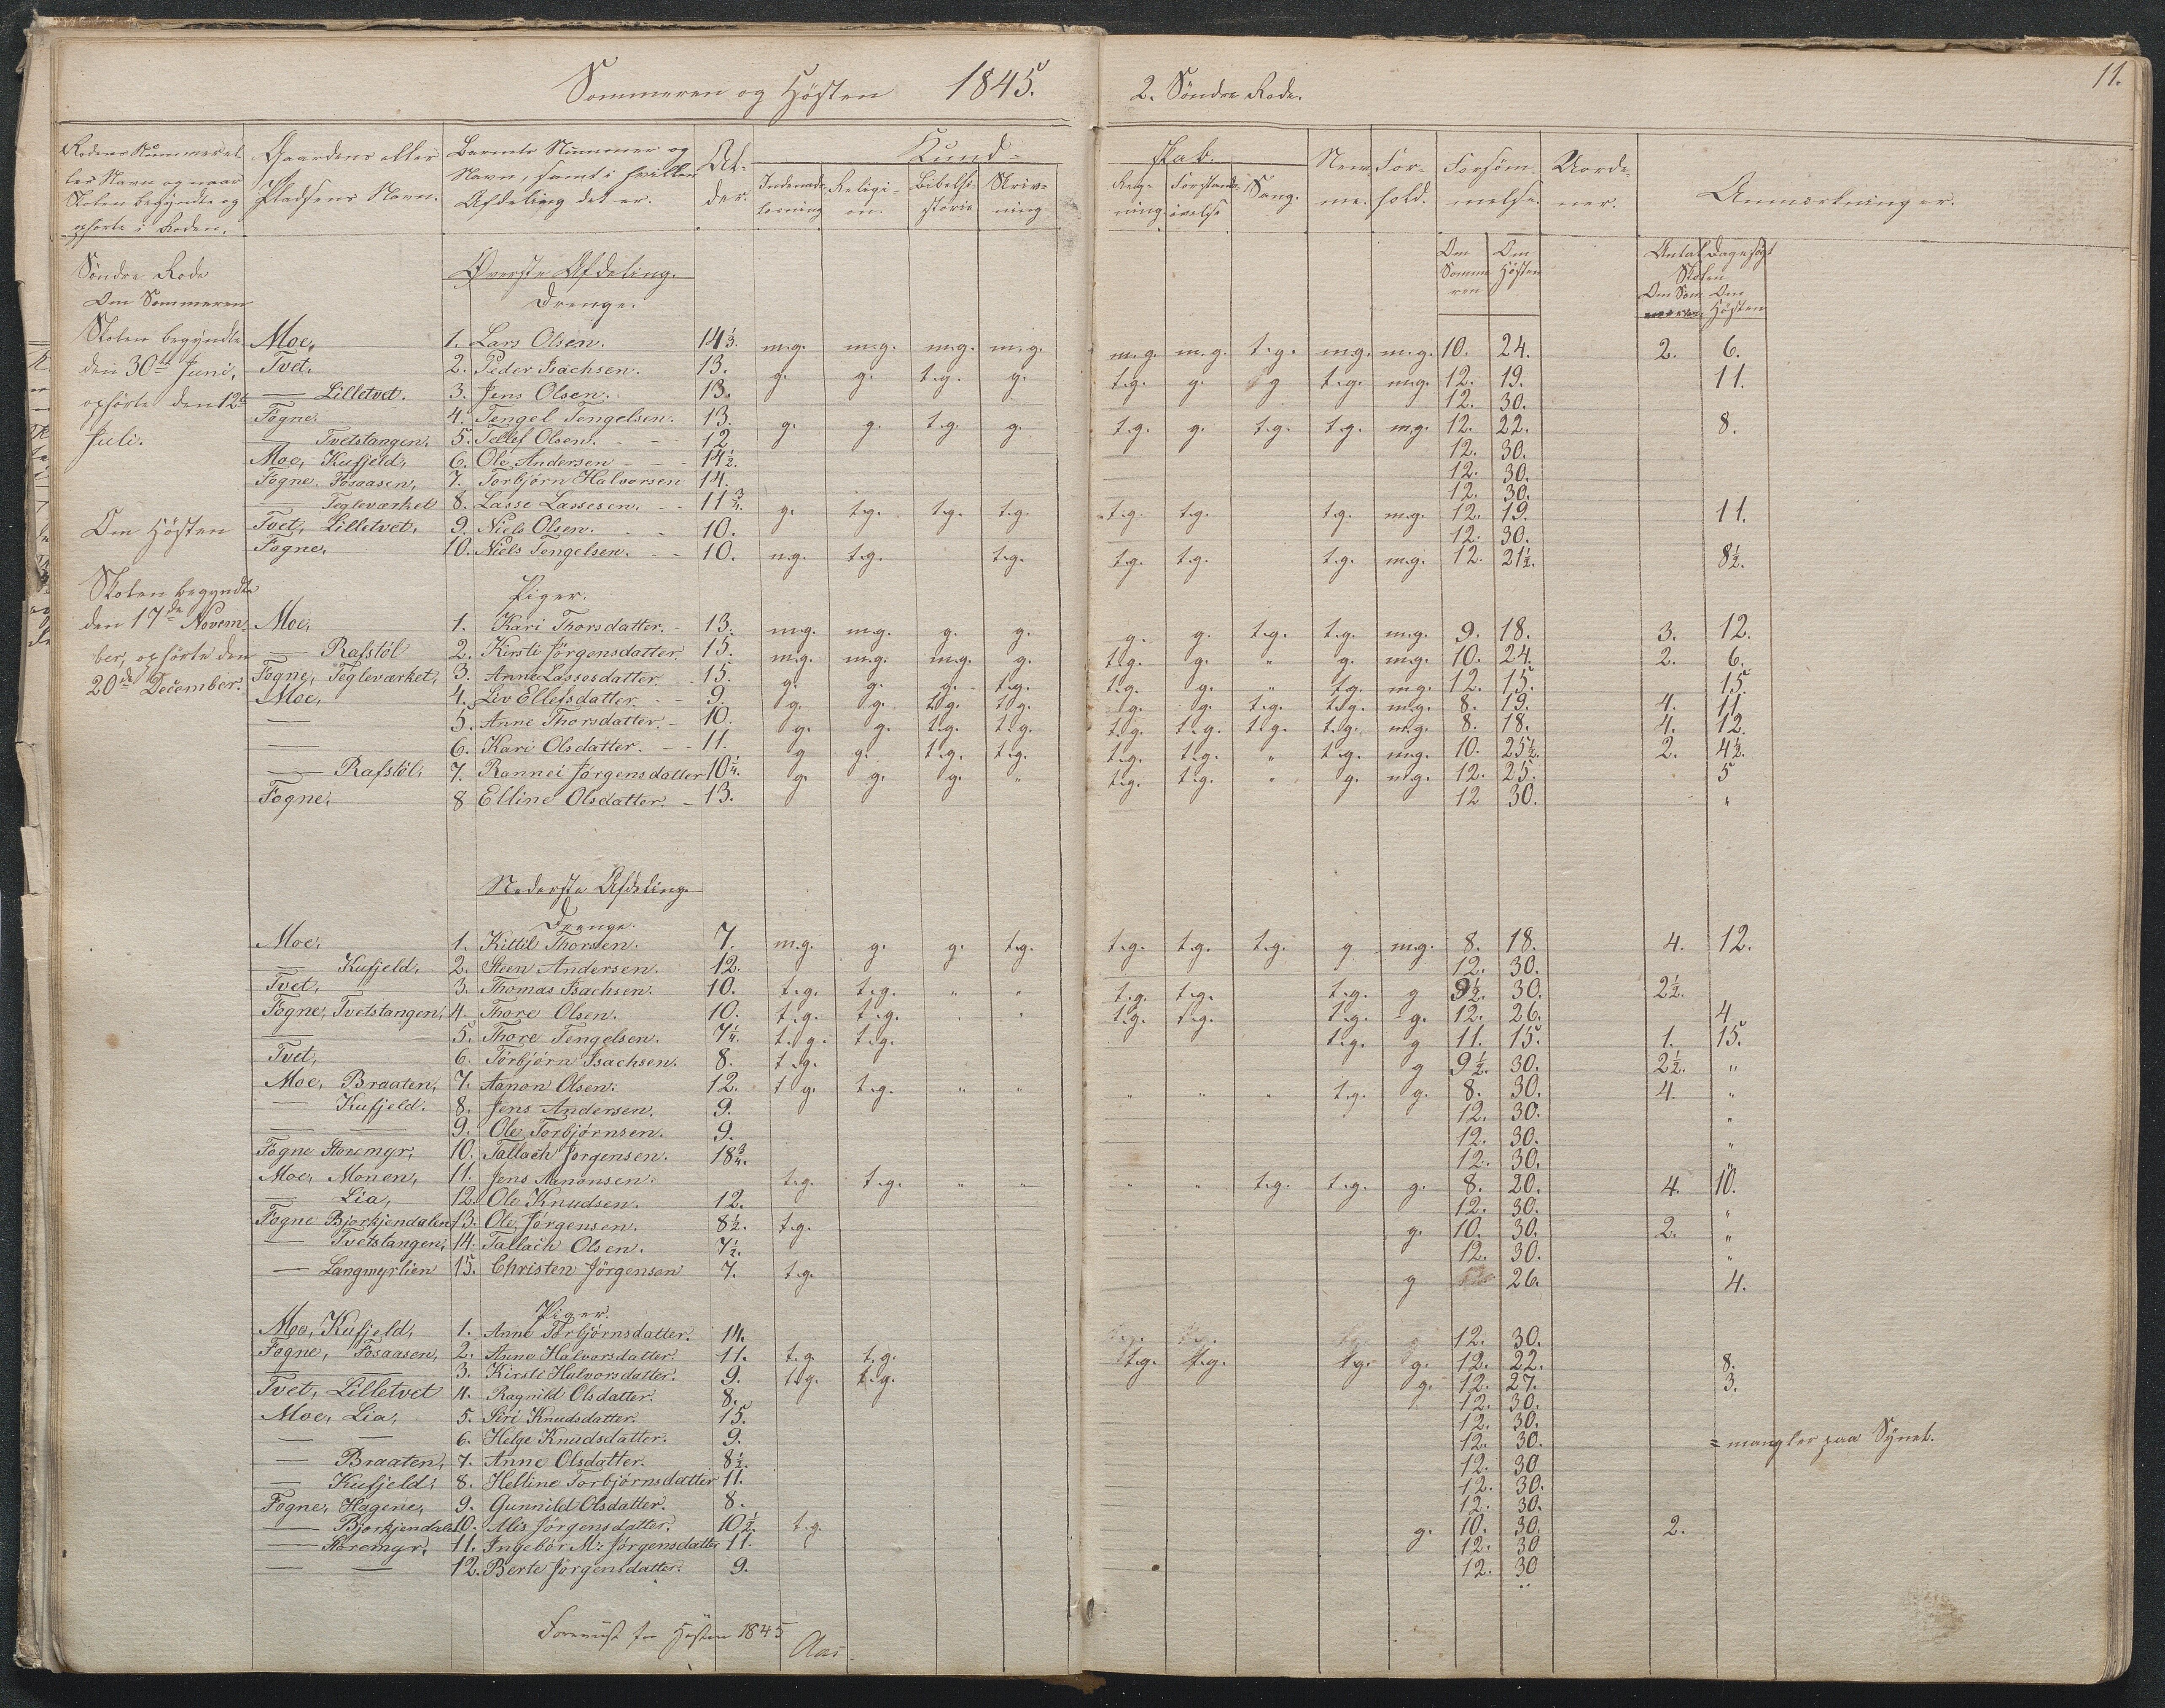 Sommeren og Hösten 1845.
2. Söndre Rode.
11.
Rodens Nummer el-
ler Navn og naar
Skolen begyndte og
ophørte i Roden.
Gaardens eller
Pladsens Navn.
Barnets Nummer og
Navn, samt i hvilken
Afdeling det er.
Al-
der.
Kund-
skab.
Indenads-
læsning
Religi-
on.
Bibelhi-
storie
Skriv-
ning
Reg-
ning
Forstands-
övelse
Sang.
Nem-
me.
For-
hold.
Forsöm-
melse.
Uorde-
ner.
Anmærkninger.
Om Sommeren
Om Hösten
Antal Dage søgt
Skolen
Om Sommeren
Om Hösten
Söndre Rode
Om Sommeren
Skolen begyndte
den 30te Juni,
ophörte den 12te
Juli.
Om Hösten
Skolen begyndte
den 17de Novem-
ber, ophörte den
20de December.
Øverste Afdeling.
Drenge.
Moe, 1. Lars Olsen. 14⅓. m.g. m.g. m.g. m.g. m.g. m.g. t.g. m.g. m.g. 10. 24. 2. 6.
Tvet, 2. Peder Isachsen. 13. g. g. t.g. g. t.g. g. g t.g. m.g. 12. 19. 11.
— Lilletvet. 3. Jens Olsen. 13. 12. 30.
Fogne. 4. Tengel Tengelsen. 13. g. g. t.g. g. t.g. g. t.g. t.g. m.g. 12. 22. 8.
— Tvetstangen, 5. Tellef Olsen. 12 12. 30.
Moe, Kufjeld, 6. Ole Andersen 14½. 12. 30.
Fogne, Fosaasen, 7. Torbjörn Halvorsen 14. 12. 30.
— Tegleværket 8. Lasse Lassesen. 11¾. g. t.g. t.g. t.g. t.g. t.g. t.g. m.g. 12. 19. 11.
Tvet, Lilletvet, 9. Niels Olsen. 10. 12. 30.
Fogne, 10. Niels Tengelsen. 10. m.g. t.g. t.g. t.g. t.g. t.g. m.g. 12. 21½. 8½.
Piger.
Moe, 1. Kari Thorsdatter. 13. m.g. m.g. g. g. g. g. t.g. t.g. m.g. 9. 18. 3. 12.
— Rafstöl 2. Kirsti Jörgensdatter 15. m.g. m.g. m.g. g. t.g. g. " g. m.g. 10. 24. 2. 6.
Fogne, Tegleværket, 3. Anne Lassesdatter 15. g. g. g. t.g. t.g. g. " t.g. m.g. 12. 15. 15.
Moe, 4. Liv Ellefsdatter 9. g. g. t.g. t.g. t.g. g. t.g. t.g. m.g. 8. 19. 4. 11
— 5. Anne Thorsdatter. 10. g. g. t.g. t.g. t.g. t.g. t.g. t.g. m.g. 8. 18. 4. 12.
— 6. Kari Olsdatter. 11. g. g. t.g. t.g. t.g. t.g. " t.g. m.g. 10. 25½. 2. 4½.
— Rafstöl, 7. Rannei Jörgensdatter 10¼. g. g. g. " t.g. t.g. " g. m.g. 12. 25. 5
Fogne, 8 Elline Olsdatter. 13. 12 30. "
Nederste Afdeling
Drenge.
Moe, 1. Kittil Thorsen. 7. m.g. g. g. t.g. t.g. t.g. t.g. g m.g. 8. 18. 4. 12.
— Kufjeld, 2. Steen Andersen. 12. 12. 30.
Tvet, 3. Thomas Isachsen. 10. t.g. t.g. " " t.g. t.g. t.g. g 9½. 30. 2½.
Fogne, Tvetstangen, 4. Thore Olsen. 10. t.g. t.g. " " t.g. t.g. t.g. g. 12. 26. 4.
— 5. Thore Tengelsen. 7¼. t.g. t.g. t.g. g 11. 15. 1. 15.
Tvet, 6. Torbjörn Isachsen. 8. t.g. g 9½. 30. 2½. "
Moe, Braaten, 7. Aanon Olsen. 12. t.g. t.g. " " " " " t.g. g. 8. 30. 4. "
— Kufjeld. 8. Jens Andersen. 9. 12. 30. "
— — 9. Ole Torbjörnsen. 9. 12. 30. "
Fogne Storemyr, 10. Tallach Jörgensen. 18¾. 12. 30. "
Moe, Monen, 11. Jens Aanonsen. t.g. t.g. " " " " t.g. t.g. g. 8. 20. 4. 10.
— Lia, 12. Ole Knudsen. 12. 12. 30. "
Fogne Bjorkjendalen 13. Ole Jörgensen. 8½. t.g. g. 10. 30. 2. "
— Tvetstangen, 14. Tallach Olsen. 7½. 12. 30. "
— Langmyrlien 15. Christen Jörgensen 7. t.g. g 26. 4.
Piger.
Moe, Kufjeld, 1. Anne Torbjörnsdatter. 14. 12. 30.
Fogne, Fosaasen, 2. Anne Halvorsdatter. 11. t.g. t.g. t.g. t.g. t.g. g. 12. 22. 8.
— 3. Kirsti Halvorsdatter. 9. t.g. t.g. g. 12. 27. 3.
Tvet, Lilletvet 4. Ragnild Olsdatter. 8. 12. 30.
Moe, Lia, 5. Siri Knudsdatter. 15. 12. 30.
— — 6. Helge Knudsdatter. 9. 12. 30. = mangler paa Synet.
— Braaten, 7. Anne Olsdatter. 8½. 12. 30
— Kufjeld, 8. Helline Torbjörnsdatter 11. 12. 30.
Fogne, Hagene, 9. Gunnild Olsdatter. 8. 12. 30.
— Bjorkjendalen 10. Alis Jörgensdatter. 10½. t.g. g. 10. 30. 2.
— Storemyr, 11. Ingebör M: Jörgensdatter 11. 12. 30
— — 12. Berte Jörgensdatter. 9. 12. 30
Foreviist for Høsten 1845
Aas